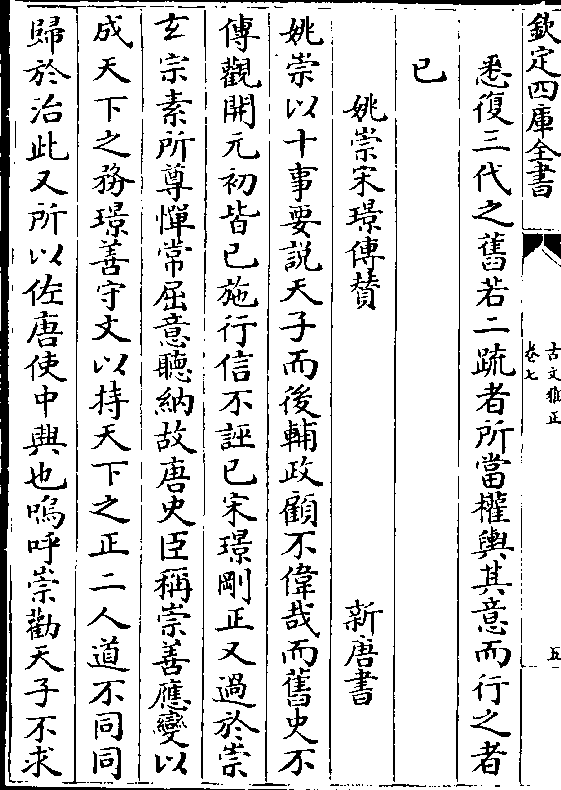 欽定四庫全書
古文雅正
卷七
五
悉復三代之舊若二疏者所當權輿其意而行之者
已
姚崇宋璟傳贊
新唐書
姚崇以十事要說天子而後輔政顧不偉哉而舊史不
傳觀開元初皆已施行信不誣已宋璟剛正又過於崇
玄宗素所尊憚常屈意聽納故唐史臣稱崇善應變以
成天下之務璟善守文以持天下之正二人道不同同
歸於治此又所以佐唐使中興也嗚呼崇勸天子不求